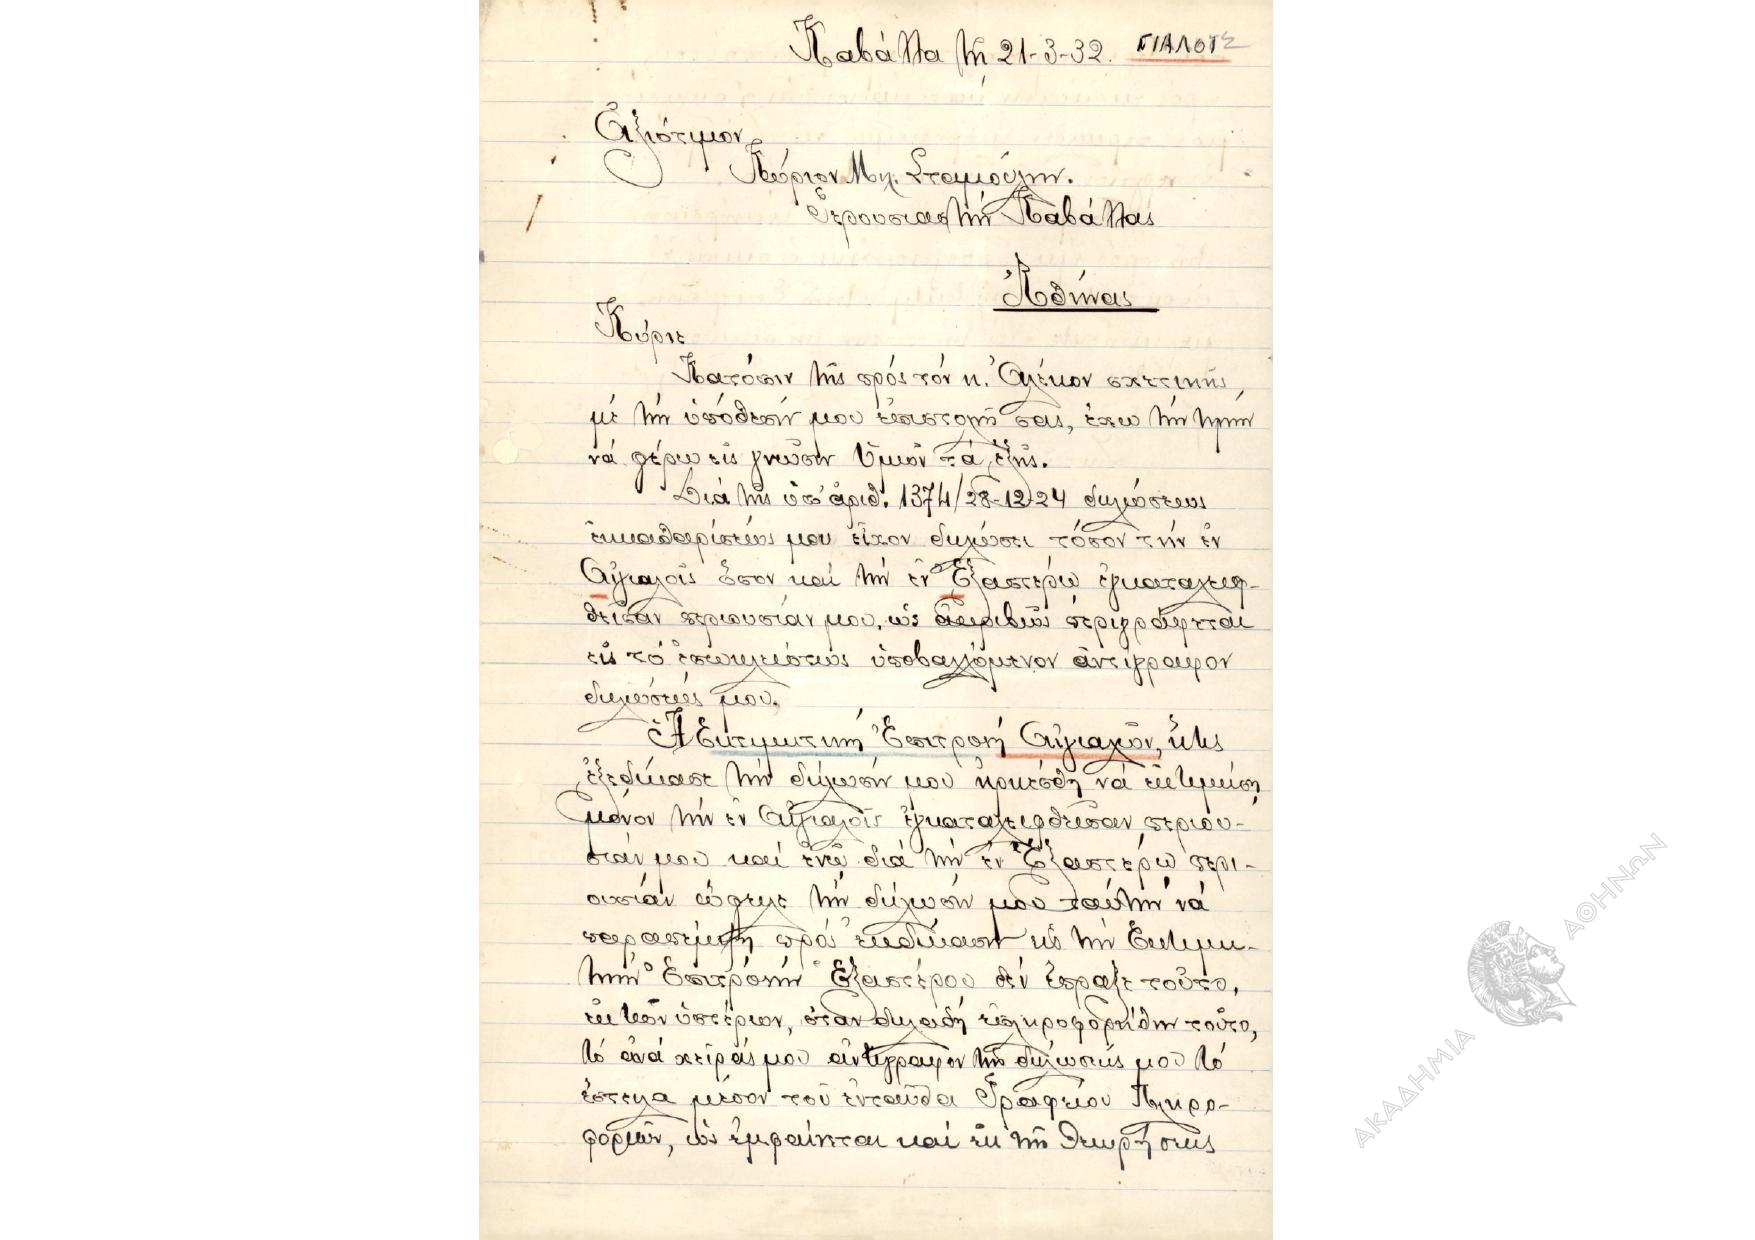 Καβάλλα τῇ 21-3-32. ΓΙΑΛΟΥΣ
Ἀξιότιμον
Κύριον Μιχ. Σταμούλην.
Γερουσιαστὴν Καβάλλας
Ἀθήνας
Κύριε
Κατόπιν τῆς πρὸς τὸν κ. Ἀλέκον σχετικῆς,
μὲ τὴν ὑπόθεσίν μου ἐπιστολῆς σας, ἔχω τὴν τιμὴν
νὰ φέρω εἰς γνῶσιν Ὑμῶν τὰ ἑξῆς.
Διὰ τῆς ὑπ' ἀριθ. 1374/28-12-24 δηλώσεως
ἐκκαθαρίσεώς μου εἶχον δηλώσει τόσον τὴν ἐν
Αἰγιαλοῖς ὅσον καὶ τὴν ἐν Ἐξαστέρῳ ἐγκαταλειφ-
θεῖσαν περιουσίαν μου, ὡς ἀκριβῶς περιγράφεται
εἰς τὸ ἐσωκλείστως ὑποβαλλόμενον ἀντίγραφον
δηλώσεώς μου.
Ἡ Ἐκτιμητικὴ Ἐπιτροπὴ Αἰγιαλῶν, ἥτις
ἐξεδίκασε τὴν δήλωσίν μου ἠρκέσθη νὰ ἐκτιμήσῃ
μόνον τὴν ἐν Αἰγιαλοῖς ἐγκαταλειφθεῖσαν περιου-
σίαν μου καὶ ἐνῷ διὰ τὴν ἐν Ἐξαστέρῳ περι-
ουσίαν ὤφειλε τὴν δήλωσίν μου ταύτην νὰ
παραπέμψῃ πρὸς ἐκδίκασιν εἰς τὴν Ἐκτιμη-
τικὴν Ἐπιτροπὴν Ἐξαστέρου δὲν ἔπραξε τοῦτο,
ἐκ τῶν ὑστέρων, ὅταν δηλαδὴ ἐπληροφορήθην τοῦτο,
τὸ ἀνὰ χεῖράς μου ἀντίγραφον τῆς δηλώσεώς μου τὸ
ἔστειλα μέσον τοῦ ἐνταῦθα Γραφείου Πληρο-
φοριῶν, ὡς ἐμφαίνεται καὶ ἐκ τῆς θεωρήσεως
ΑΚΑΔΗΜΙΑ ΑΘΗΝΩΝ